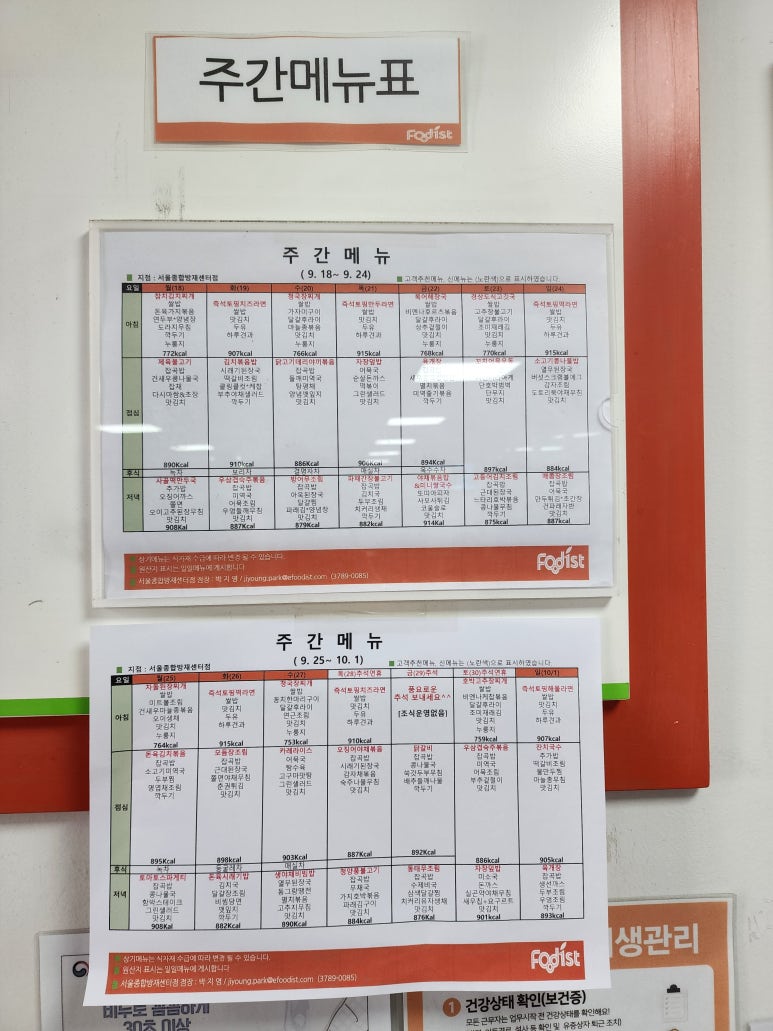 주간메뉴표
Foodist
주 간 메 뉴
( 9. 18~ 9. 24)
■ 지점 : 서울종합방재센터점
■ 고객추천메뉴, 신메뉴는 (노란색)으로 표시하였습니다.
요일 월(18) 화(19) 수(20) 목(21) 금(22) 토(23) 일(24)
아침
참치김치찌개
쌀밥
돈육가지볶음
연두부*양념장
도라지무침
깍두기
누룽지
772kcal
즉석토핑치즈라면
쌀밥
맛김치
두유
하루견과
907kcal
청국장찌개
쌀밥
가자미구이
달걀후라이
마늘쫑볶음
맛김치
누룽지
766kcal
즉석토핑만두라면
쌀밥
맛김치
두유
하루견과
915kcal
북어해장국
쌀밥
비엔나호르츠볶음
달걀후라이
상추겉절이
맛김치
누룽지
768kcal
경상도식고깃국
쌀밥
고추장불고기
달걀후라이
조미재래김
맛김치
누룽지
770kcal
즉석토핑떡라면
쌀밥
맛김치
두유
하루견과
915kcal
점심
제육불고기
잡곡밥
건새우콩나물국
잡채
다시마쌈&초장
맛김치
890Kcal
김치볶음밥
시래기된장국
떡갈비조림
쿨링쿨컷*케찹
부추야채샐러드
깍두기
910kcal
닭고기데리야끼볶음
잡곡밥
들깨미역국
탕평채
양념깻잎지
맛김치
886Kcal
자장덮밥
어묵국
순살돈까스
떡볶이
그린샐러드
맛김치
육개장
잡곡밥
멸치볶음
미역줄기볶음
깍두기
894Kcal
단호박범벅
단무지
맛김치
897kcal
소고기콩나물밥
열무된장국
버섯스크램블에그
감자조림
도토리묵야채무침
맛김치
884kcal
후식 녹차 보리차 결명자차 매실차 옥수수차
저녁
사골떡만두국
추가밥
오징어까스
쫄면
오이고추된장무침
맛김치
908Kcal
우삼겹숙주볶음
잡곡밥
미역국
어묵조림
우엉들깨무침
맛김치
887Kcal
방어무조림
잡곡밥
아욱된장국
달걀찜
파래김*양념장
맛김치
879Kcal
파채간장불고기
잡곡밥
김치국
두부조림
치커리생채
맛김치
882kcal
야채볶음밥
&미니쌀국수
또띠아피자
사모사튀김
코울슬로
맛김치
914Kal
고등어김치조림
잡곡밥
근대된장국
느타리호박볶음
콩나물무침
깍두기
875kcal
해물짬조림
잡곡밥
어묵국
만두튀김*초간장
건파래자반
맛김치
887kcal
■ 상기메뉴는 식자재 수급에 따라 변경 될 수 있습니다.
■ 원산지 표시는 일일메뉴에 게시합니다
■ 서울종합방재센터점 점장 : 박 지 영 / jiyoung.park@efoodist.com (3789-0085)
Foodist
주 간 메 뉴
( 9. 25~ 10. 1)
■ 지점 : 서울종합방재센터점
■ 고객추천메뉴, 신메뉴는 (노란색)으로 표시하였습니다.
요일 월(25) 화(26) 수(27) 목(28)추석연휴 금(29)추석 토(30)추석연휴 일(10/1)
아침
차돌된장찌개
쌀밥
미트볼조림
건새우마늘쫑볶음
오이생채
맛김치
누룽지
764kcal
즉석토핑떡라면
쌀밥
맛김치
두유
하루견과
915kcal
청국장찌개
쌀밥
동치한마리구이
달걀후라이
연근조림
맛김치
누룽지
753kcal
즉석토핑치즈라면
쌀밥
맛김치
두유
하루견과
910kcal
풍요로운
추석 보내세요^^
[조식운영없음]
호박고추장찌개
쌀밥
비엔나케찹볶음
달걀후라이
조미재래김
맛김치
누룽지
759kcal
즉석토핑해물라면
쌀밥
맛김치
두유
하루견과
907kcal
점심
돈육김치볶음
잡곡밥
소고기미역국
두부찜
명엽채조림
깍두기
895Kcal
모듬장조림
잡곡밥
근대된장국
쫄면야채무침
춘권튀김
맛김치
898kcal
카레라이스
어묵국
탕수육
고구마맛탕
그린샐러드
맛김치
903Kcal
오징어야채볶음
잡곡밥
시래기된장국
감자채볶음
숙주나물무침
맛김치
887Kcal
닭갈비
잡곡밥
콩나물국
쑥갓두부무침
배추들깨나물
깍두기
892Kcal
우삼겹숙주볶음
잡곡밥
미역국
어묵조림
부추겉절이
맛김치
886kcal
잔치국수
추가밥
떡갈비조림
물만두찜
마늘쫑무침
맛김치
905kcal
후식 녹차 둥굴레차 매실차
저녁
토마토스파게티
잡곡밥
콩나물국
함박스테이크
그린샐러드
맛김치
908Kal
돈육시래기밥
김치국
달걀장조림
비빔당면
깻잎지
깍두기
882Kcal
생야채비빔밥
열무된장국
동그랑땡전
멸치볶음
고추지무침
맛김치
890Kcal
청양풍불고기
잡곡밥
무채국
가지호박볶음
파래김구이
맛김치
884kcal
동태무조림
잡곡밥
수제비국
삼색달걀찜
치커리유자생채
맛김치
876Kal
자장덮밥
미소국
돈까스
실곤약야채무침
새우칩+요구르트
맛김치
901kcal
육개장
잡곡밥
생선까스
두부조림
우엉조림
맛김치
893kcal
■ 상기메뉴는 식자재 수급에 따라 변경 될 수 있습니다.
■ 원산지 표시는 일일메뉴에 게시합니다
■ 서울종합방재센터점 점장 : 박 지 영 / jiyoung.park@efoodist.com (3789-0085)
Foodist
비누로 꼼꼼하게
30초 이상
생관리
1 건강상태 확인(보건증)
모든 근무자는 업무시작 전 건강상태를 확인해요!